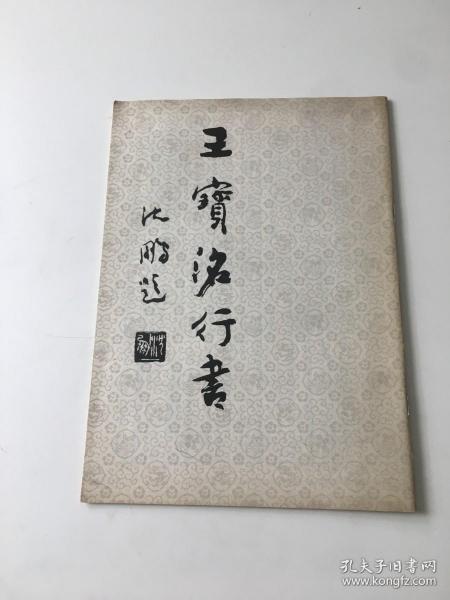 王寳洺行書
沈鹏题
孔夫子旧书网
www.kongfz.com